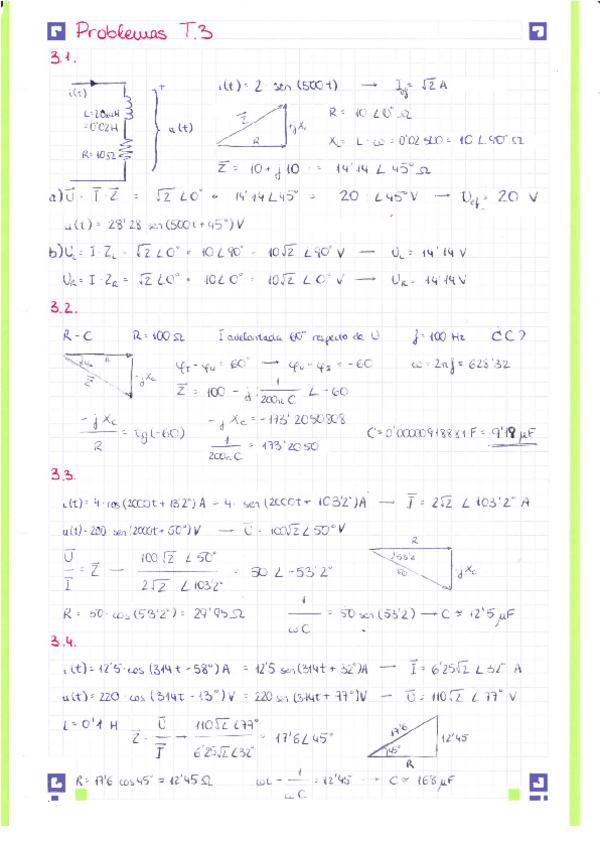 Problemas T.3
3.1.
i(t)
L=20mH
=0'02H
R=10Ω
+
u(t)
i(t) = 2 sen (500t) → Ief = √2 A
Z
R
+jXL
R = 10 ∠0° Ω
XL = L·ω = 0'02·500 = 10 ∠90° Ω
Z = 10 + j10 = 14'14 ∠45° Ω
a) U = I·Z = √2 ∠0° · 14'14∠45° = 20 ∠45° V → Uef = 20 V
u(t) = 28'28 sen (500t + 45°) V
b) UL = I·ZL = √2 ∠0° · 10∠90° = 10√2 ∠90° V → UL = 14'14 V
UR = I·ZR = √2 ∠0° · 10∠0° = 10√2 ∠0° V → UR = 14'14 V
3.2.
R-C R = 100 Ω I adelantada 60° respecto de U f = 100 Hz C C?
R
Z
-jXc
φI - φU = 60° → φU - φI = -60 ω = 2πf = 628'32
Z = 100 - j 1/200πC ∠-60
-jXc/R = tg(-60) -jXc = -173'2050808
1/200πC = 173'2050 C = 0'00000918881 F = 9'19 μF
3.3.
i(t) = 4·cos (2000t + 13'2°) A = 4· sen (2000t + 103'2°) A → I = 2√2 ∠103'2° A
u(t) = 200 sen (2000t + 50°) V → U = 100√2 ∠50° V
U/I = Z → 100√2 ∠50° / 2√2 ∠103'2° = 50 ∠-53'2°
R
53'2
50
-jXc
R = 50·cos (53'2°) = 29'95 Ω 1/ωC = 50 sen (53'2) → C ≈ 12'5 μF
3.4.
i(t) = 12'5·cos (314t - 58°) A = 12'5 sen (314t + 32°) A → I = 6'25√2 ∠32° A
u(t) = 220 cos (314t - 13°) V = 220 sen (314t + 77°) V → U = 110√2 ∠77° V
L = 0'1 H Z = U/I → 110√2 ∠77° / 6'25√2 ∠32° = 17'6∠45°
17'6
45°
R
12'45
R = 17'6 cos 45° = 12'45 Ω ωL - 1/ωC = 12'45 → C ≈ 168 μF